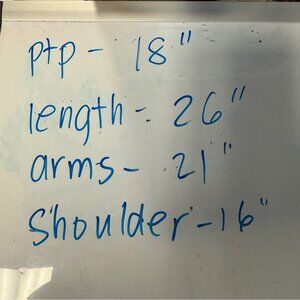 ptp - 18"
length - 26"
arms - 21"
Shoulder - 16"